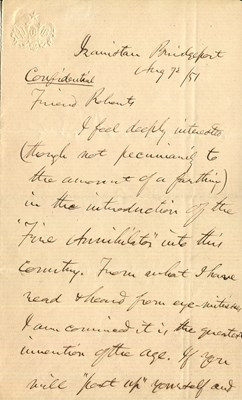 Iranistan Bridgeport
Aug 7th /51
Confidential
Friend Roberts
I feel deeply interested
(though not pecuniarily to
the amount of a farthing)
in the introduction of the
"Fire Annihilator" into this
country. From what I have
read & heard from eye-witnesses
I am convinced it is the greatest
invention of the age. If you
will "post up" yourself and